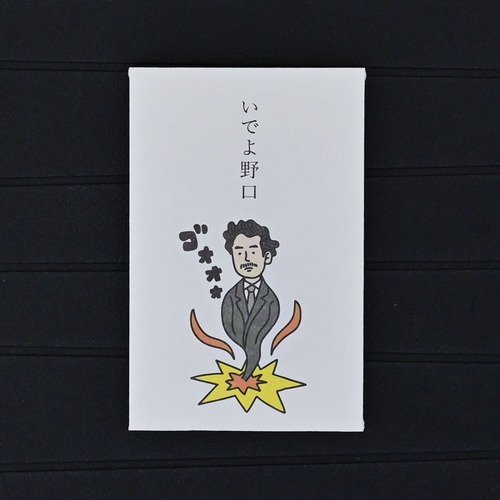 いでよ野口
ゴォォォ